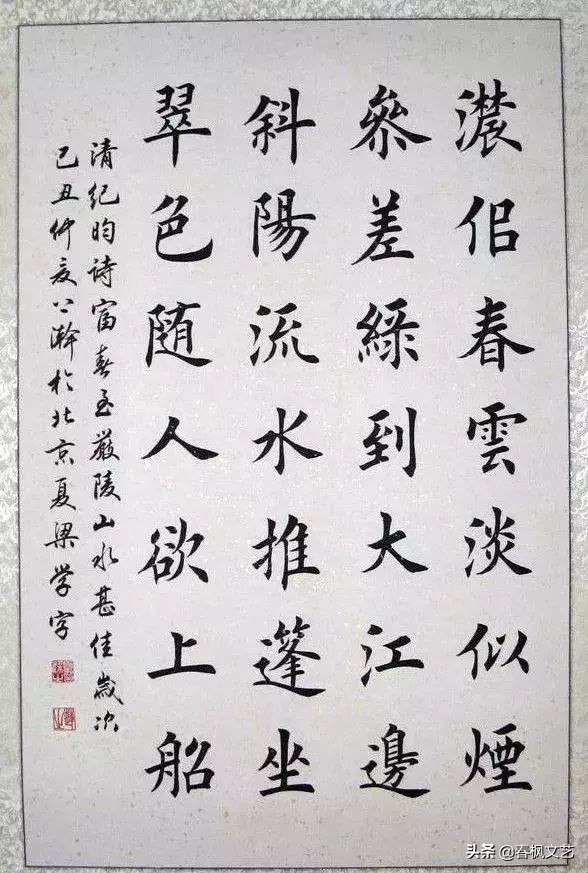 濃侣春雲淡似煙
參差綠到大江邊
斜陽流水推篷坐
翠色随人欲上船
清纪昀诗富春至嚴陵山水甚佳歲次
己丑仲夏於北京夏梁学字
头条 @春枫文艺